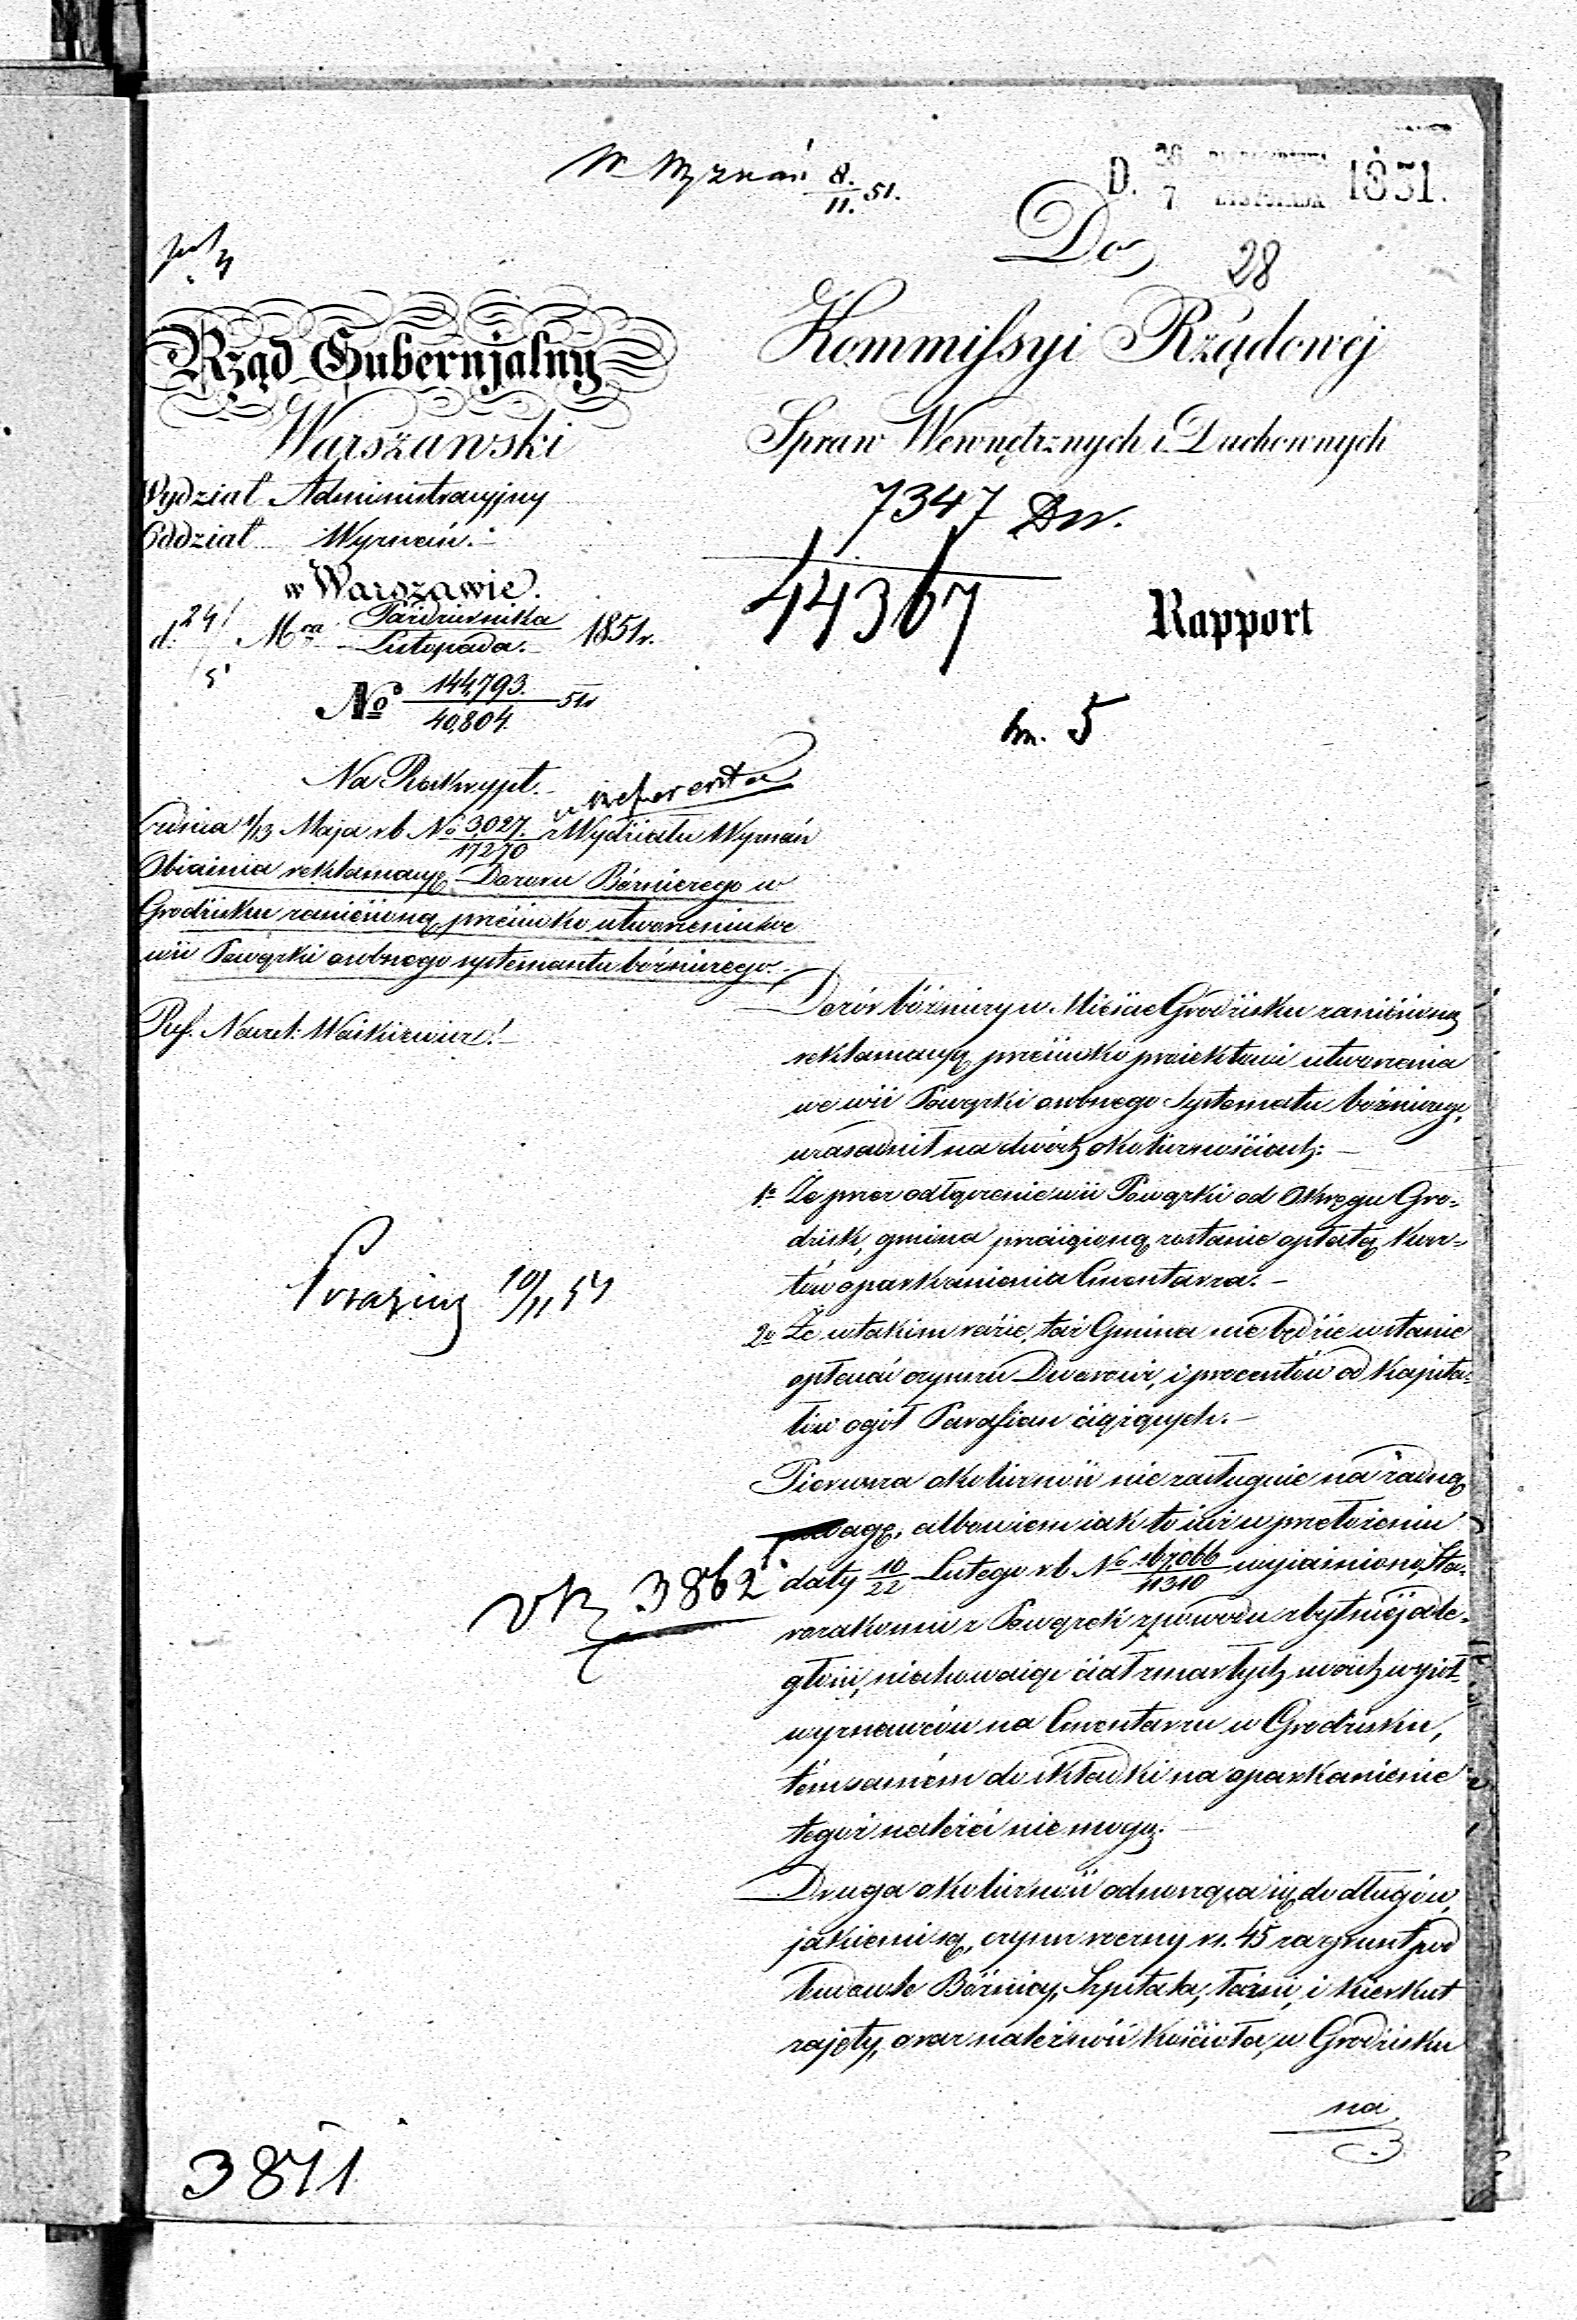 W. Wyznań 8./11. 51.
D. 26 PAŹDZIERNIKA / 7 LISTOPADA 1851.
Do
28
Rząd Gubernjalny
Warszawski
Wydział Administracyjny
Oddział Wyznań.
w Warszawie.
d. 24/5 Mca Października/Listopada. 1851 r.
No 144,793./40,804. 51r
Na Reskrypt.
z dnia 1/13 Maja r b No 3,027./17270 z Wydziału Wyznań
u referenta
Obiaśnia reklamacyę Dozoru Bóżniczego w
Grodzisku zaniesioną przeciwko utworzeniu we
wsi Powązki osobnego systematu bóżniczego.
Ref. Naczel: Waśkiewicz
Kommissyi Rządowej
Spraw Wewnętrznych i Duchownych
7347 Dw.
44367
Rapport
5
Dozór bóżniczy w Mieście Grodzisku zaniesioną
reklamacyę przeciwko proiektowi utworzenia
we wsi Powązki osobnego Systematu bóżniczego,
uzasadnił na dwóch okolicznościach:
1o Że przez odłączenie wsi Powązki od Okręgu Gro-
dzisk, gmina przeciążoną zostanie opłatą kosz-
tów oparkanienia Cmentarza.
2o Że w takim razie, taż Gmina nie będzie w stanie
opłacać czynszu Dworowi, i procentów od kapita-
łów ogół Parafian ciążących.
Pierwsza okoliczność nie zasługuie na żadną
wagę, albowiem iak to iuż w przełożeniu
daty 10/22 Lutego r b No 167,066/11310 wyiaśniono, Sta-
rozakonni z Powązek z powodu zbytniej odle-
głości, nie chowaiąc ciał zmarłych swoich współ-
wyznawców na Cmentarzu w Grodzisku,
tém samém do składki na oparkanienie
tegoż należeć nie mogą.
Druga okoliczność odnosząca się do długów,
jakiemi są, czynsz roczny rs. 45 za grunt pod
budowle Bóżnicy, Szpitala, Łaźni, i kierkut
zajęty, oraz należność Kościoła, w Grodzisku
na
10/11 51
3862
3871